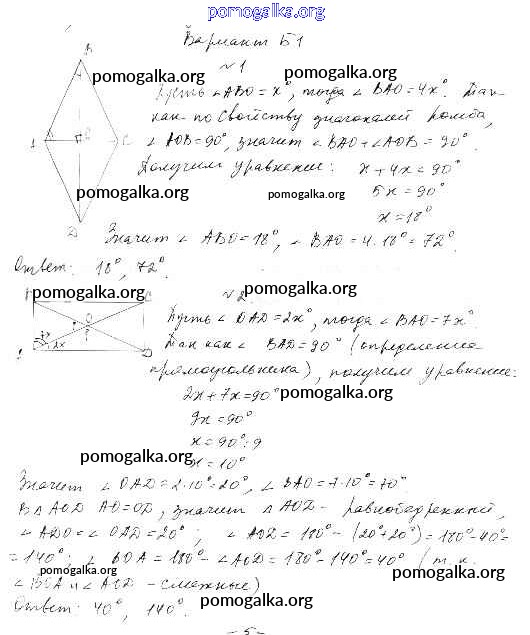 pomogalka.org
Вариант Б1
№1
pomogalka.org pomogalka.org
Пусть ∠ABO = x°, тогда ∠BAO = 4x°. Так
как по свойству диагоналей ромба,
∠AOB = 90°, значит ∠BAO + ∠AOB = 90°.
Получим уравнение: x + 4x = 90°
pomogalka.org pomogalka.org
5x = 90°
x = 18°
Значит ∠ABO = 18°, ∠BAO = 4·18° = 72°.
Ответ: 18°, 72°.
pomogalka.org №2 pomogalka.org
Пусть ∠OAD = 2x°, тогда ∠BAO = 7x°
Так как ∠BAD = 90° (определение
прямоугольника), получим уравнение:
2x + 7x = 90° pomogalka.org
9x = 90°
x = 90°:9
pomogalka.org x = 10°
Значит ∠OAD = 2·10° = 20°, ∠BAO = 7·10° = 70°
В ΔAOD AO = OD, значит ΔAOD - равнобедренный,
∠ADO = ∠OAD = 20°; ∠AOD = 180° - (20° + 20°) = 180° - 40° =
= 140°; ∠BOA = 180° - ∠AOD = 180° - 140° = 40° (т.к.
pomogalka.org pomogalka.org
∠BOA и ∠AOD - смежные)
Ответ: 40°, 140°. pomogalka.org
- 5 -